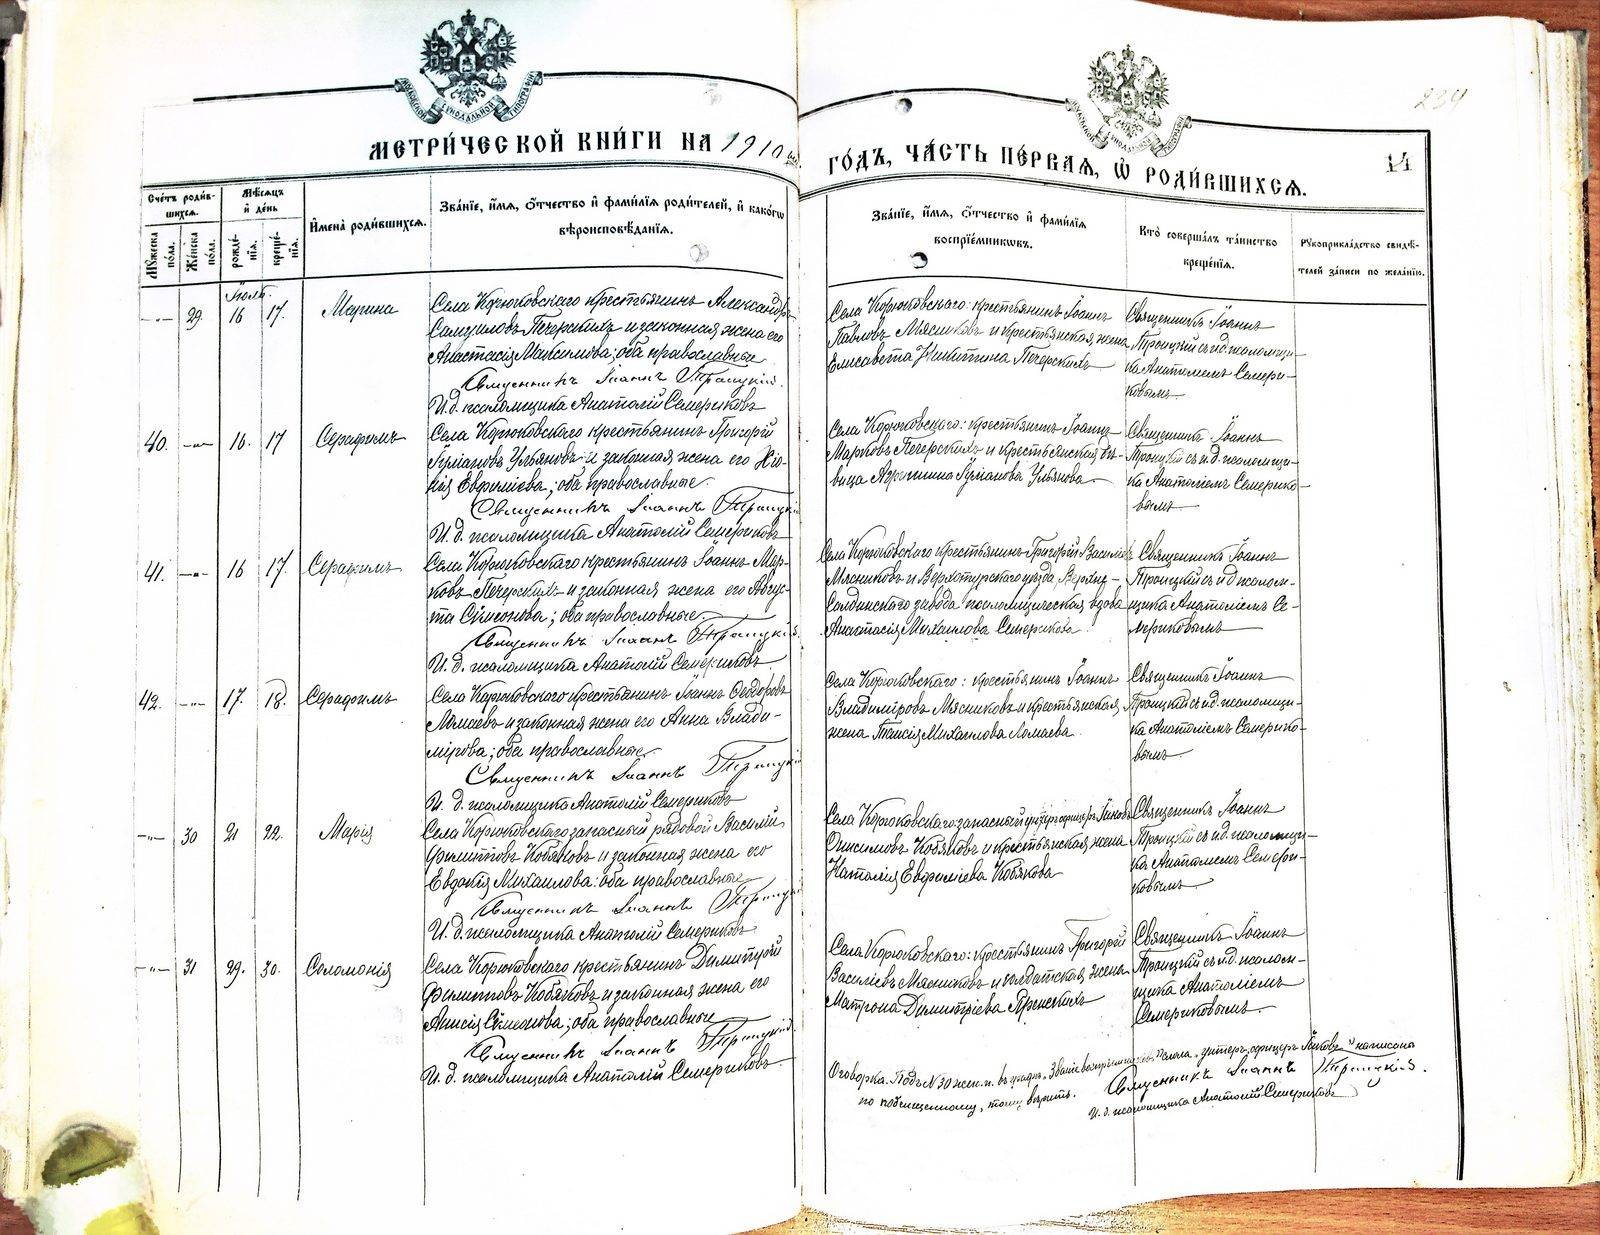 МОСКОВСКОЙ СѴНОДАЛЬНОЙ ТИПОГРАФІИ
МОСКОВСКОЙ СѴНОДАЛЬНОЙ ТИПОГРАФІИ
234
МЕТРИ́ЧЕСКОЙ КНИ́ГИ НА 1910
ГО́ДЪ, ЧА́СТЬ ПЕ́РВАЯ, Ѡ РОДИ́ВШИХСЯ.
14
Сче́тъ роди́в-
шихся.
Му́жеска по́ла.
Же́нска по́ла.
Мѣ́сяцъ
и де́нь
рожде́-
нія.
креще́-
нія.
И҆мена̀ роди́вшихся.
Зва́ніе, и҆́мя, ѻ҆́тчество и҆ фами́лїя роди́телей, и҆ како́гѡ
вѣроисповѣ́данія.
Зва́ніе, и҆́мя, ѻ҆́тчество и҆ фами́лїя
воспріе́мникѡвъ.
Кто̀ соверша́лъ та́инство
креще́нія.
Рукоприкла́дство свидѣ́-
телей за́писи по жела́нію.
Іюль.
-"- 29. 16 17. Марина
Села Корюковскаго крестьянинъ Александръ
Самуиловъ Печерскихъ и законная жена его
Анастасія Максимова; оба православные
Священникъ Іоаннъ Троицкій.
И. д. псаломщика Анатолій Семериковъ
Села Корюковскаго: крестьянинъ Іоаннъ
Павловъ Мясниковъ и крестьянская жена
Елисавета Никитина Печерскихъ
Священникъ Іоаннъ
Троицкій съ и.д. псаломщи-
ка Анатоліемъ Семери-
ковымъ
40. -"- 16. 17 Серафимъ
Села Корюковскаго крестьянинъ Григорій
Гуріановъ Ульяновъ и законная жена его Хіо-
нія Евфиміева; оба православные.
Священникъ Іоаннъ Троицкій
И. д. псаломщика Анатолій Семериковъ
Села Корюковскаго: крестьянинъ Іоаннъ
Марковъ Печерскихъ и крестьянская дѣ-
вица Агриппина Гуріанова Ульянова
Священникъ Іоаннъ
Троицкій съ и. д. псаломщи-
ка Анатоліемъ Семерико-
вымъ
41. -"- 16 17. Серафимъ
Села Корюковскаго крестьянинъ Іоаннъ Мар-
ковъ Печерскихъ и законная жена его Авгус-
та Сѵмеонова; оба православные.
Священникъ Іоаннъ Троицкій.
И. д. псаломщика Анатолій Семериковъ
Села Корюковскаго крестьянинъ Григорій Василіевъ
Мясниковъ и Верхотурскаго уѣзда, Верхне-
Салдинскаго завода псаломщическая вдова
Анастасія Михаилова Семерикова.
Священникъ Іоаннъ
Троицкій съ и д псалом-
щика Анатоліемъ Се-
мериковымъ
42. -"- 17. 18. Серафимъ
Села Корюковскаго крестьянинъ Іоаннъ Ѳеодоровъ
Ломаевъ и законная жена его Анна Влади-
мірова; оба православные.
Священникъ Іоаннъ Троицкій
И. д. псаломщика Анатолій Семериковъ
Села Корюковскаго: крестьянинъ Іоаннъ
Владиміровъ Мясниковъ и крестьянская
жена Таисія Михаилова Ломаева.
Священникъ Іоаннъ
Троицкій съ и.д. псаломщи-
ка Анатоліемъ Семерико-
вымъ.
-"- 30 21 22. Марія
Села Корюковскаго запасный рядовой Василій
Филипповъ Кобяковъ и законная жена его
Евдокія Михаилова: оба православные
Священникъ Іоаннъ Троицкій
И. д. псаломщика Анатолій Семериковъ
Села Корюковскаго: запасный унтеръ офицеръ Іаковъ
Онисимовъ Кобяковъ и крестьянская жена
Наталія Евфиміева Кобякова
Священникъ Іоаннъ
Троицкій съ и.д. псаломщи-
ка Анатоліемъ Семери-
ковымъ
-"- 31 29. 30. Соломонія
Села Корюковскаго крестьянинъ Димитрій
Филипповъ Кобяковъ и законная жена его
Анисія Сѵмеонова; оба православные
Священникъ Іоаннъ Троицкій
И. д. псаломщика Анатолій Семериковъ.
Села Корюковскаго: крестьянинъ Григорій
Василіевъ Мясниковъ и солдатская жена
Матрона Димитріева
Священникъ Іоаннъ
Троицкій съ и.д. псалом-
щика Анатоліемъ
Семериковымъ.
Оговорка. Подъ № 30 жен. п. въ графѣ „Званіе воспріемниковъ" слова „унтеръ офицеръ Іаковъ" написаны
по подчищенному, тому вѣрить. Священникъ Іоаннъ Троицкій.
И. д. псаломщика Анатолій Семериковъ